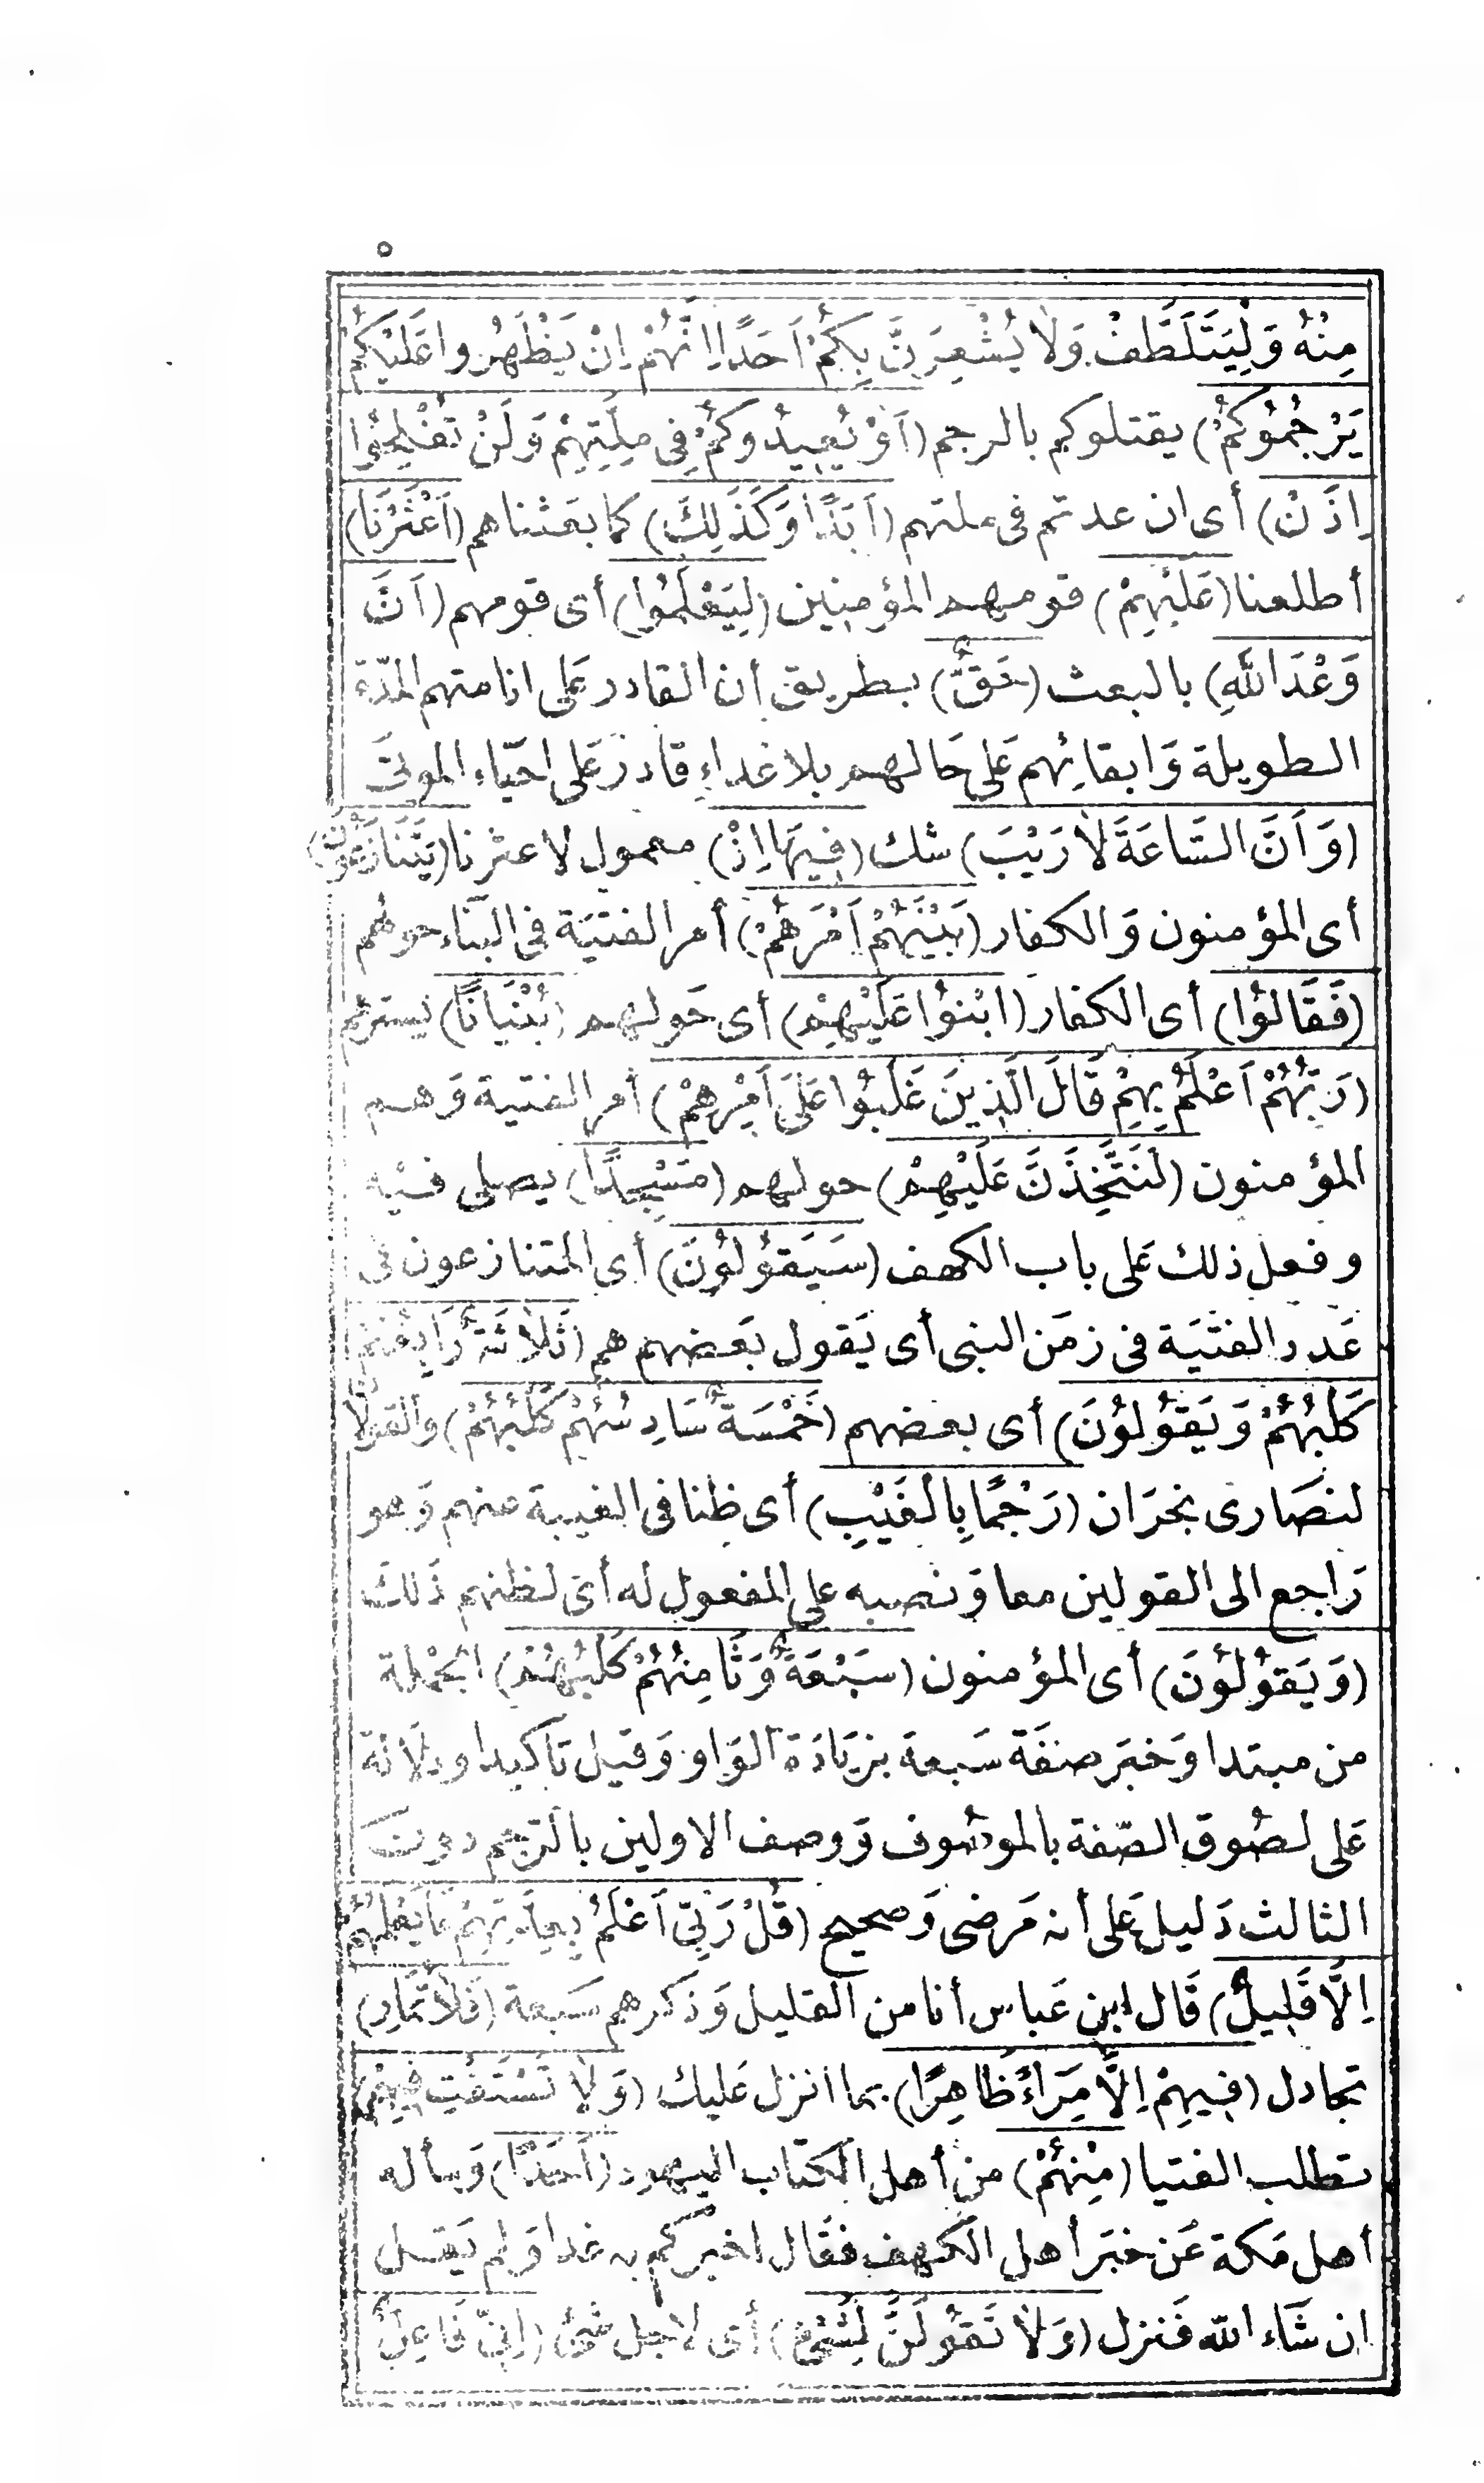 ٥
مِنْهُ وَلْيَتَلَطَّفْ وَلَا يُشْعِرَنَّ بِكُمْ اَحَدًا اِنَّهُمْ اِنْ يَظْهَرُوا عَلَيْكُمْ
يَرْجُمُوكُمْ) يقتلوكم بالرجم (اَوْ يُعِيدُوكُمْ فِي مِلَّتِهِمْ وَلَنْ تُفْلِحُوا
اِذَنْ) أى ان عدتم فى ملتهم (اَبَدًا وَكَذَلِكَ) كما بعثناهم (اَعْثَرْنَا)
أطلعنا (عَلَيْهِمْ) قومهم المؤمنين (لِيَعْلَمُوا) أى قومهم (اَنَّ
وَعْدَ اللهِ) بالبعث (حَقٌّ) بطريق أن القادر عَلى انامتهم المدّة
الطويلة وَابقائِهم عَلى حَالهم بلا غداءِ قادر عَلى احيَاء الموتَى
(وَاَنَّ السَّاعَةَ لَا رَيْبَ) شك (فِيهَا اِذْ) معمول لاعثرنا (يَتَنَازَعُونَ)
أى المؤمنون وَالكفار (بَيْنَهُمْ اَمْرَهُمْ) أمر الفتيَة فى البنَاء حولهم
(فَقَالُوا) أى الكفار (ابْنُوا عَلَيْهِمْ) أى حَولهم (بُنْيَانًا) يسترهم
(رَبُّهُمْ اَعْلَمُ بِهِمْ قَالَ الَّذِينَ غَلَبُوا عَلَى اَمْرِهِمْ) أمر الفتية وَهم
المؤمنون (لَنَتَّخِذَنَّ عَلَيْهِمْ) حولهم (مَسْجِدًا) يصلى فيْه
وفعل ذلك عَلى باب الكهف (سَيَقُولُونَ) أى المتنازعون فى
عَدد الفتيَة فى زمَن النبى أى يَقول بَعضهم هم (ثَلَاثَةٌ رَابِعُهُمْ
كَلْبُهُمْ وَيَقُولُونَ) أى بعضهم (خَمْسَةٌ سَادِسُهُمْ كَلْبُهُمْ) والقولان
لنصَارى نجرَان (رَجْمًا بِالْغَيْبِ) أى ظنا فى الغيبة عنهم وَهو
رَاجع الى القولين معا وَنصبه على المفعول له أى لظنهم ذَلك
(وَيَقُولُونَ) أى المؤمنون (سَبْعَةٌ وَثَامِنُهُمْ كَلْبُهُمْ) الجمْلة
من مبتدا وَخبَر صفَة سَبعة بزيَادَة الوَاو وَقيل تاكيدا ودلَالة
عَلى لصُوق الصّفة بالموصُوف وَوصف الاولين بالرّجم دونَ
الثالث دَليل عَلى أنه مَرضى وَصحيح (قُلْ رَبِّى اَعْلَمُ بِعِدَّتِهِمْ مَا يَعْلَمُهُمْ
اِلَّا قَلِيلٌ) قَال ابن عَباس أنا من القليل وَذكرهم سَبعة (فَلَا تُمَارِ)
تجادل (فِيهِمْ اِلَّا مِرَاءً ظَاهِرًا) بما انزل عَليك (وَلَا تَسْتَفْتِ فِيهِمْ)
تطلب الفتيا (مِنْهُمْ) من أهل الكتَاب اليهود (اَحَدًا) وَسأله
أهل مَكة عَن خبَر أهل الكهف فقَال اخبركم به غدا وَلم يَقل
ان شَاء الله فَنزل (وَلَا تَقُولَنَّ لِشَىْءٍ) أى لاجل شئ (اِنِّى فَاعِلٌ